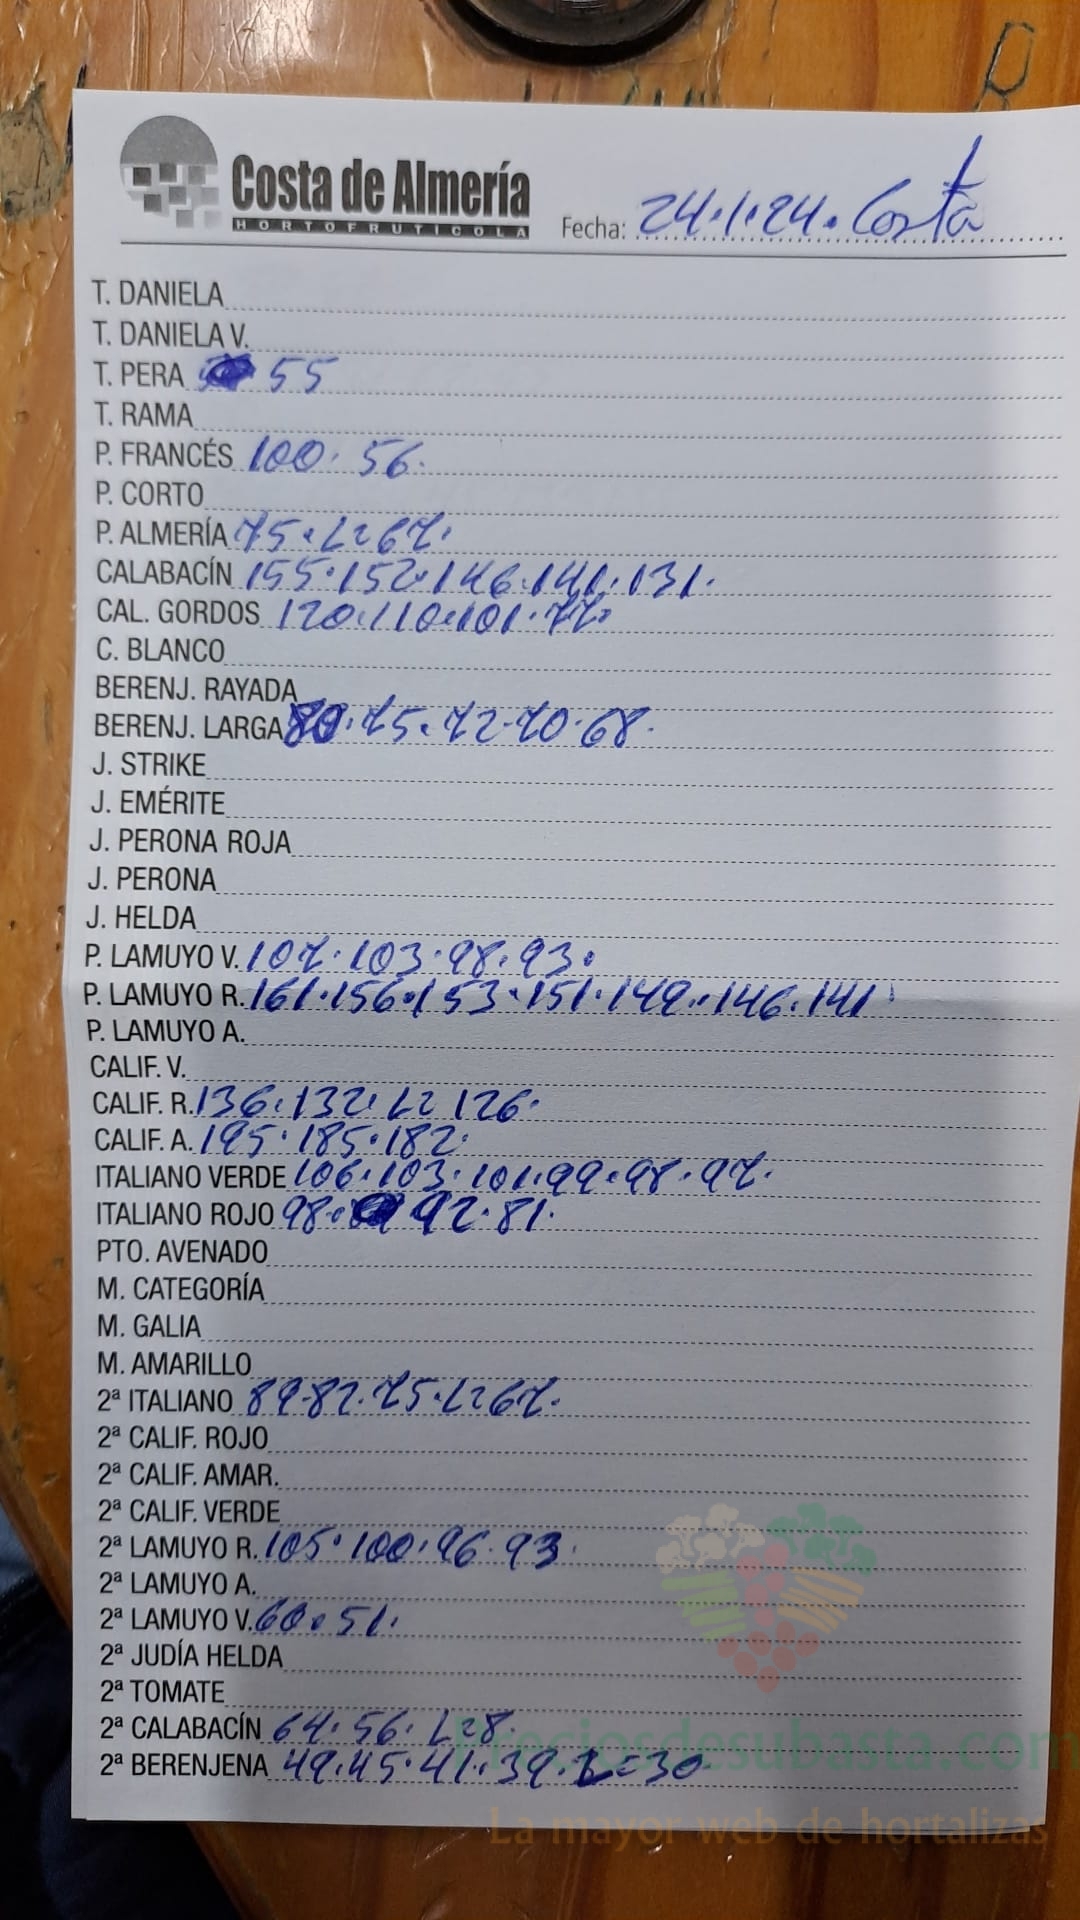 Costa de Almería
HORTOFRUTICOLA
Fecha: 24.1.24. Costa
T. DANIELA
T. DANIELA V.
T. PERA 55
T. RAMA
P. FRANCÉS 100. 56.
P. CORTO
P. ALMERÍA 75. L=67.
CALABACÍN 155.152.146.141.131.
CAL. GORDOS 120.110.101.77.
C. BLANCO
BERENJ. RAYADA
BERENJ. LARGA 80.75.72.70.68.
J. STRIKE
J. EMÉRITE
J. PERONA ROJA
J. PERONA
J. HELDA
P. LAMUYO V. 107.103.98.93.
P. LAMUYO R. 161.156.153.151.149.146.141
P. LAMUYO A.
CALIF. V.
CALIF. R. 136.132. L= 126.
CALIF. A. 195.185.182.
ITALIANO VERDE 106.103.101.99.98.97.
ITALIANO ROJO 98. 92.81.
PTO. AVENADO
M. CATEGORÍA
M. GALIA
M. AMARILLO
2ª ITALIANO 89.82.75.L=67.
2ª CALIF. ROJO
2ª CALIF. AMAR.
2ª CALIF. VERDE
2ª LAMUYO R. 105.100.96.93.
2ª LAMUYO A.
2ª LAMUYO V. 60.51.
2ª JUDÍA HELDA
2ª TOMATE
2ª CALABACÍN 64.56. L=8.
2ª BERENJENA 49.45.41.39.L=30.
Preciosdesubasta.com
La mayor web de hortalizas